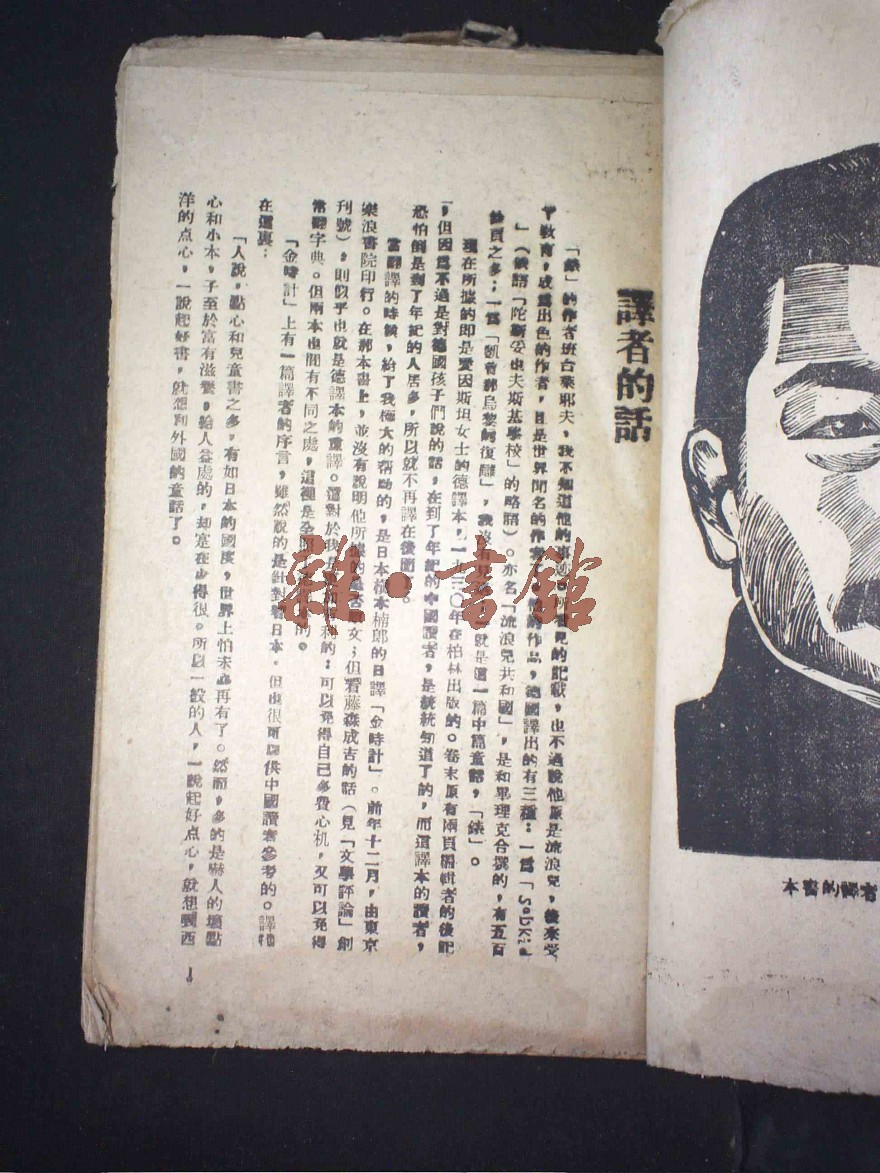 本書的譯者
譯者的話
「錶」的作者班台萊耶夫，我不知道他的事所見的記載，也不過說他原是流浪兒，後來受
了敎育，成爲出色的作者，且是世界聞名的作家的作品，德國譯出的有三種：一爲「Schkid
」（俄語「陀斯妥也夫斯基學校」的略語）。亦名「流浪兒共和國」，是和畢理克合撰的，有五百
餘頁之多；一爲「凱普那烏黎的復讎」，我沒有見就是這一篇中篇童話，「錶」。
現在所據的即是愛因斯坦女士的德譯本，一九三〇年在柏林出版的。卷末原有兩頁編輯者的後記
，但因爲不過是對德國孩子們說的話，在到了年紀的中國讀者，是統統知道了的，而這譯本的讀者，
恐怕倒是到了年紀的人居多，所以就不再譯在後面。
當翻譯的時候，給了我極大的幫助的，是日本槙本楠郎的日譯「金時計」。前年十二月，由東京
樂浪書院印行。在那本書上，並沒有說明他所據的是否原文；但看藤森成吉的話（見「文學評論」創
刊號），則似乎也就是德譯本的重譯。這對於我是利的：可以免得自己多費心机，又可以免得
常翻字典。但兩本也間有不同之處，這裡是全照的。
「金時計」上有一篇譯者的序言，雖然說的是針對着日本，但也很可以供中國讀者參考的。譯
在這裏：
「人說，點心和兒童書之多，有如日本的國度，世界上怕未必再有了。然而，多的是嚇人的壞點
心和小本，子至於富有滋養，給人益處的，却實在少得很。所以一般的人，一說起好点心，就想到西
洋的点心，一說起好書，就想到外國的童話了。
1
雜·書館